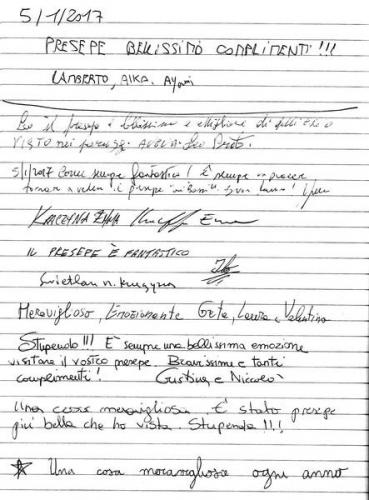 5/1/2017
PRESEPE BELLISSIMO COMPLIMENTI!!!
UMBERTO, AIKA. Ayami
il presepe è bellissimo e migliore di
VISTO nei paraggi
5/1/2017 Come sempre fantastico! È sempre un piacere
tornare a vedere il presepe
IL PRESEPE È FANTASTICO
Meraviglioso, Emozionante Greta, Laura e Valentina
Stupendo!!! È sempre una bellissima emozione
visitare il vostro presepe. Bravissimi e tanti
complimenti! Giustina e Niccolò
Una cosa meravigliosa. È stato presepe
più bella che ho vista. Stupenda!!!
Una cosa meravigliosa ogni anno